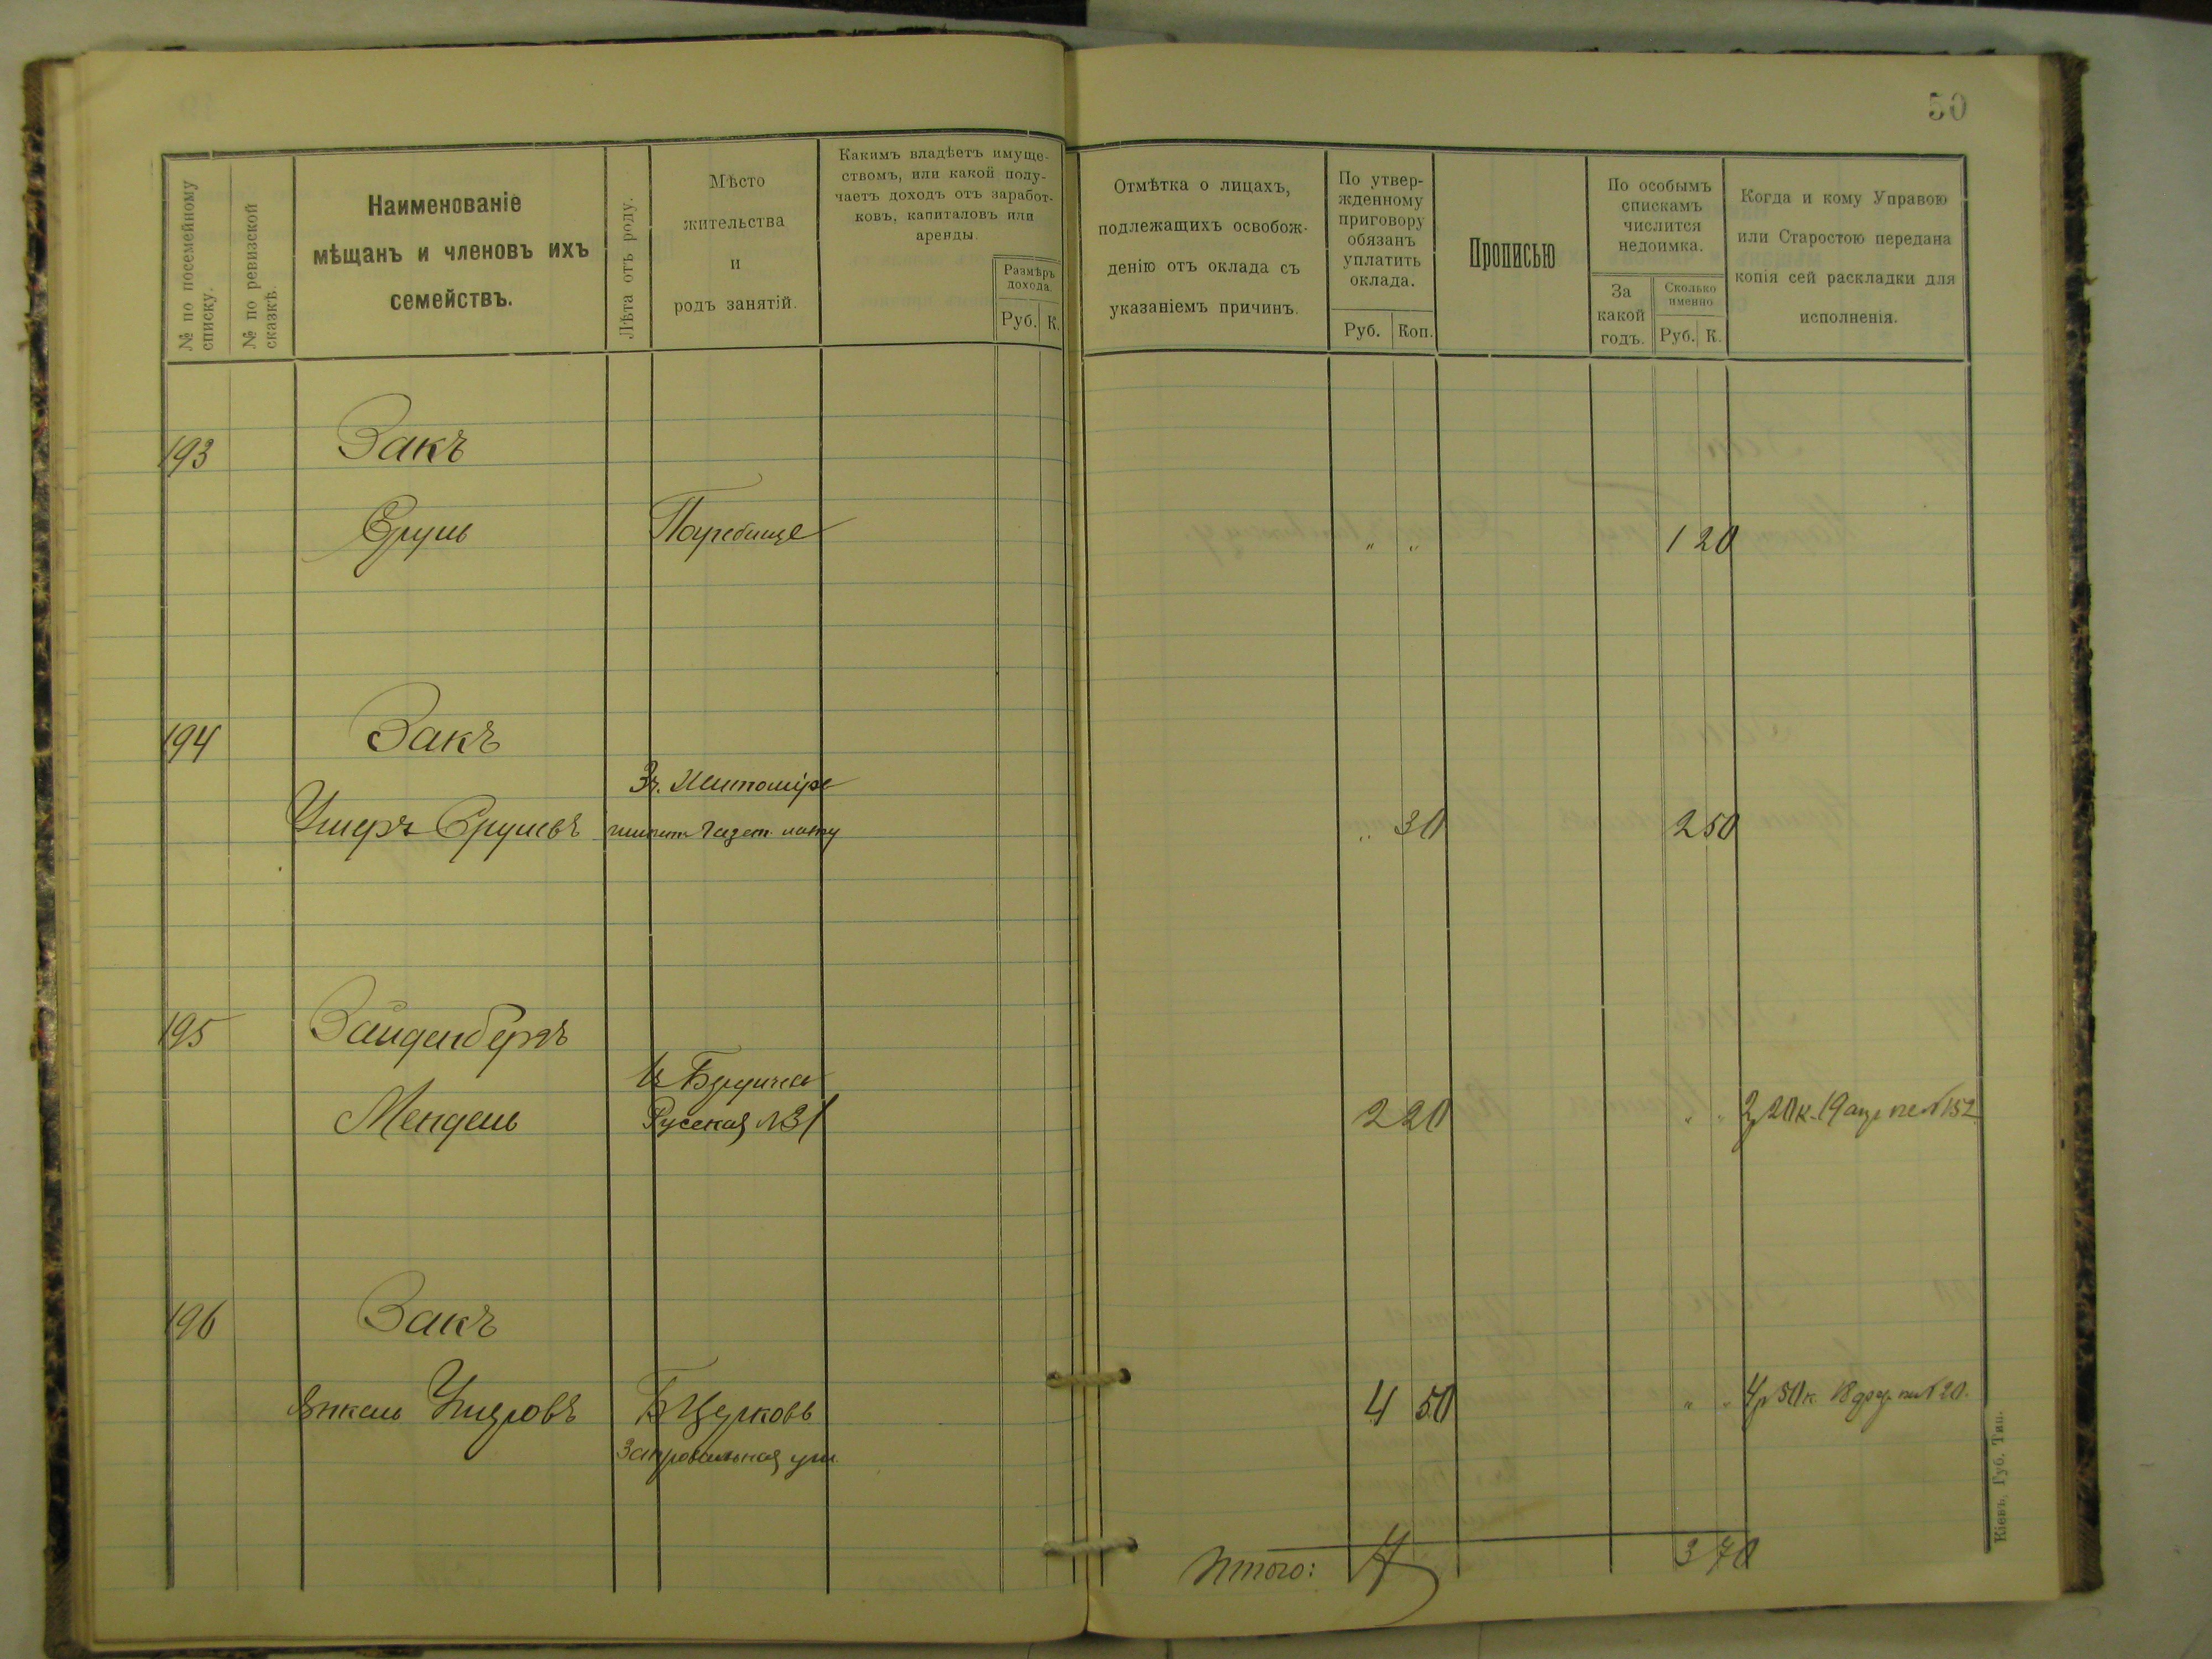 50
№ по посемейному списку.
№ по ревизской сказкѣ.
Наименованіе
мѣщанъ и членовъ ихъ
семействъ.
Лѣта отъ роду.
Мѣсто
жительства
и
родъ занятій.
Какимъ владѣетъ имуще-
ствомъ, или какой полу-
чаетъ доходъ отъ заработ-
ковъ, капиталовъ или
аренды.
Размѣръ
дохода.
Руб. К.
Отмѣтка о лицахъ,
подлежащихъ освобож-
денію отъ оклада съ
указаніемъ причинъ.
По утвер-
жденному
приговору
обязанъ
уплатить
оклада.
Руб. Коп.
Прописью
По особымъ
спискамъ
числится
недоимка.
За
какой
годъ.
Сколько
именно
Руб. К.
Когда и кому Управою
или Старостою передана
копія сей раскладки для
исполненія.
193 Закъ
Срулъ Погребище " " 1 20
194 Закъ
Житомірѣ
Умеръ Срулевъ " 30 2 50
195 Зайденбергъ
Бердичев
Мендель Русская №31 2 20 " " 2р 20к. 19 апр №152
196 Закъ
Янкель Б Церковь 4 50 " " 4р 50к 18 №20.
ул.
Итого: 7 3 70
Кіевъ, Губ. Тип.